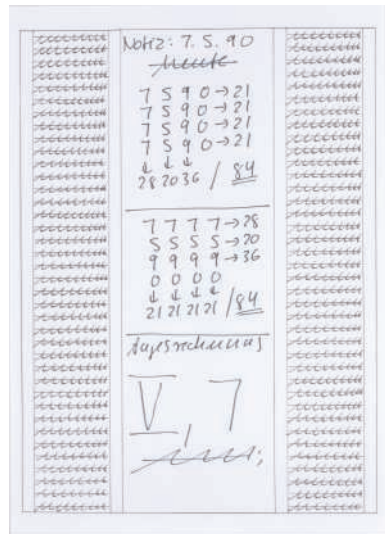 Notiz: 7. 5. 90
heute
7 5 9 0→21
7 5 9 0→21
7 5 9 0→21
7 5 9 0→21
↓ ↓ ↓
28 20 36 / 84
7 7 7 7→28
5 5 5 5→20
9 9 9 9→36
0 0 0 0
↓ ↓ ↓ ↓
21 21 21 21 /84
Tagesrechnung
V, 7